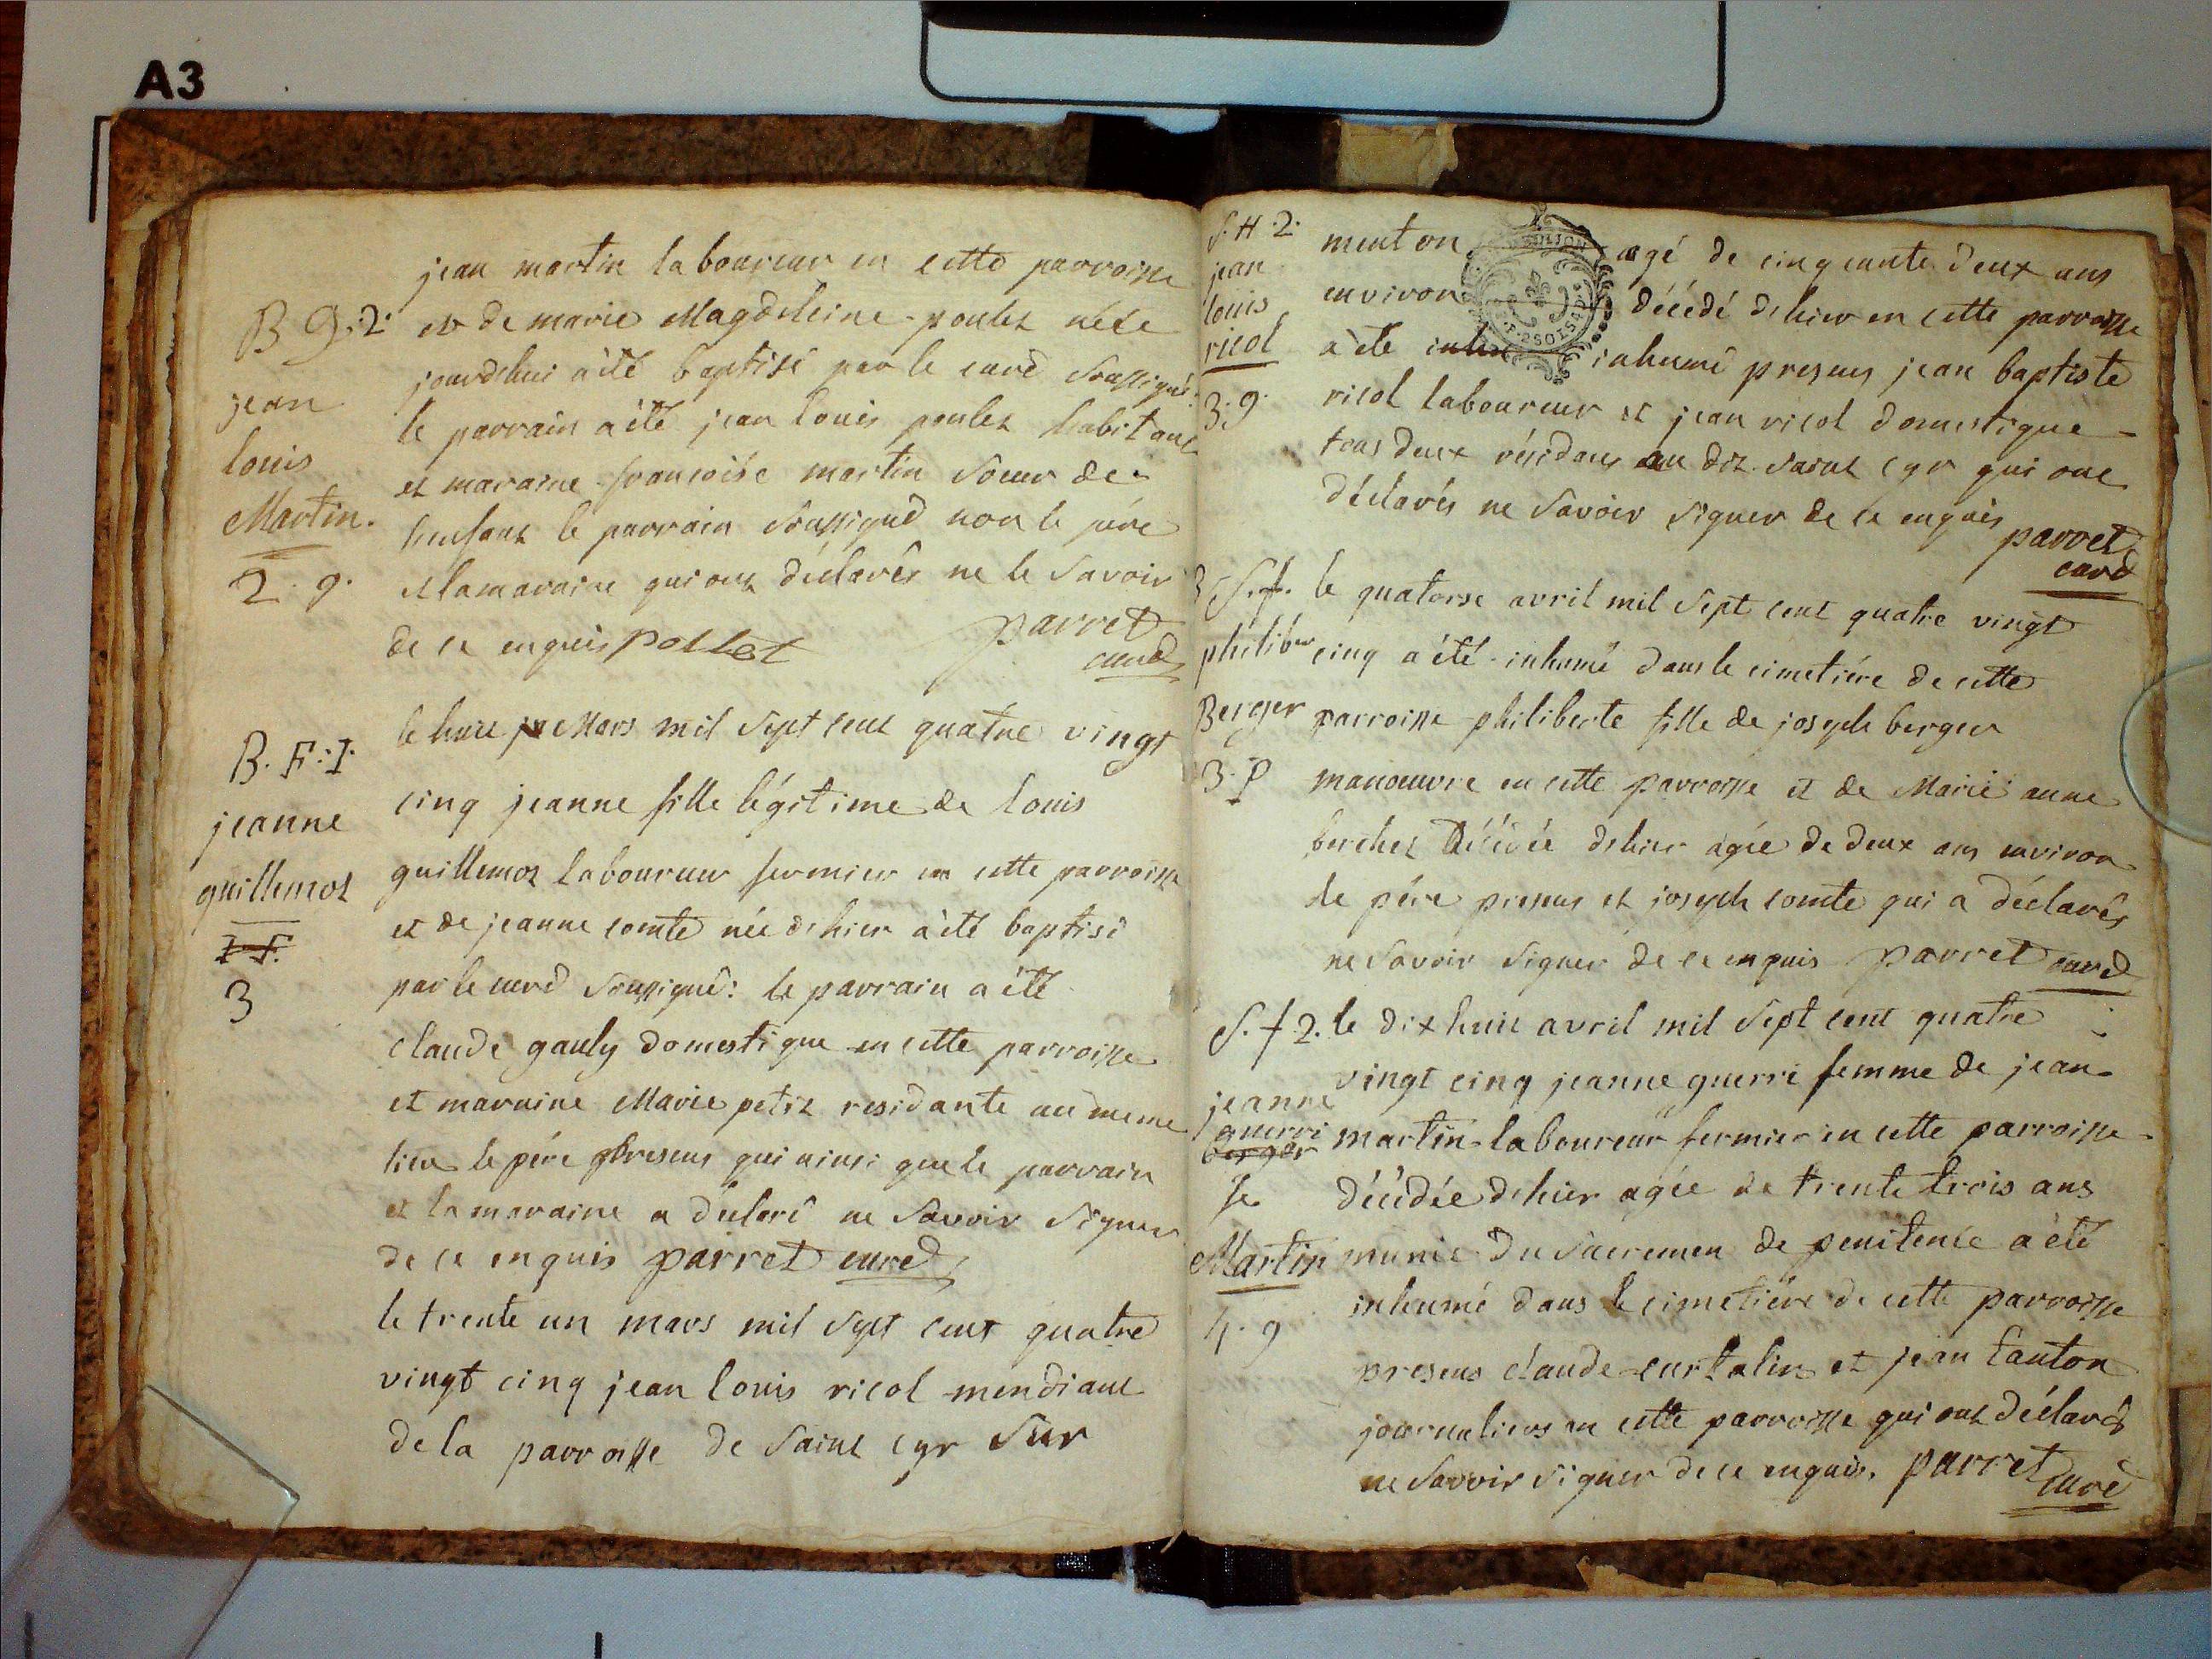 A3
jean martin laboureur en cette parroisse
B g. 2. et de marie Magdeleine poulet né le
jourdehui a été baptisé par le curé soussigné:
jean
le parrain a été jean louis poulet habitant
louis
et maraine françoise martin soeur de
Martin.
lenfant le parrain soussigné non le pére
2. g.
et la maraine qui ont déclarés ne le savoir
de ce enquis pollet parret
curé
le huit Mars mil sept cent quatre vingt
B. F. I.
cinq jeanne fille légitime de louis
jeanne
guillemot laboureur fermier en cette parroisse
guillemot
et de jeanne comte née dehier a été baptisé
I F.
par le curé soussigné: le parrain a été
3
claude gauly domestique en cette parroisse
et maraine Marie petit residante au meme
lieu le pére presens qui ainsi que le parrain
et la maraine a déclaré ne savoir signer
de ce enquis parret curé
le trente un mars mil sept cent quatre
vingt cinq jean louis ricol mendiant
de la parroisse de saint cyr sur
S. H. 2.
jean
louis
ricol
3. g.
menton agé de cinquante deux ans
environ décédé dehier en cette parroisse
a été inhumé presens jean baptiste
ricol laboureur et jean ricol domestique
tous deux résidans au dit saint cyr qui ont
déclarés ne savoir signer de ce enquis parret
curé
3 S. f. le quatorse avril mil sept cent quatre vingt
philiber cinq a été inhumé dans le cimetiére de cette
Berger parroisse philiberte fille de joseph berger
3. P manoeuvre en cette parroisse et de Marie anne
berchet décédée dehier agée de deux ans environ
le pére presens et joseph comte qui a déclarés
ne savoir signer de ce enquis parret curé
S. f. 2. le dix huit avril mil sept cent quatre
vingt cinq jeanne guerri femme de jean
jeanne
guerri
berger martin laboureur fermier en cette parroisse
fe décédée dehier agée de trente trois ans
Martin munie du sacremen de penitence a été
inhumé dans le cimetiére de cette parroisse
4. g
presens claude curtalin et jean tanton
journaliers en cette parroisse qui ont déclarés
ne savoir signer de ce enquis. parret curé